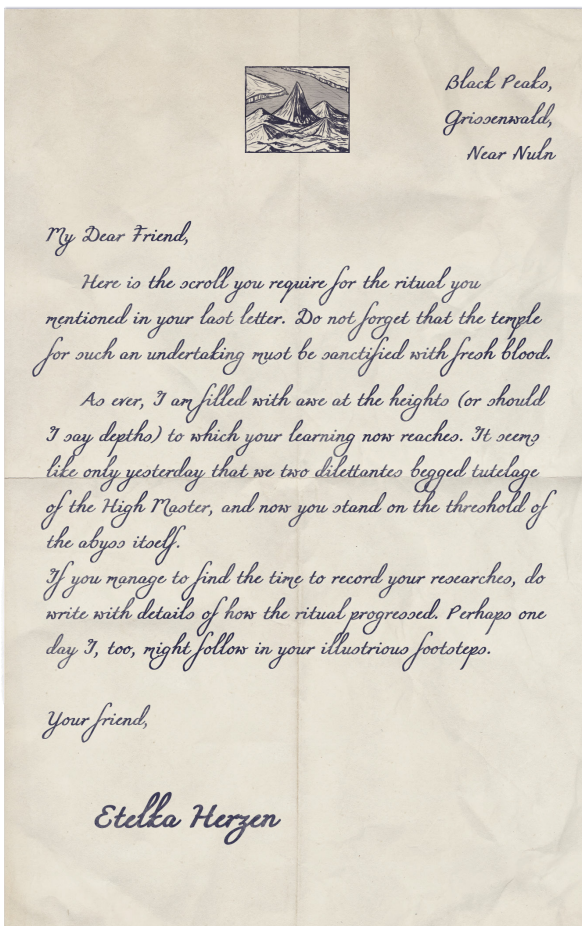 Black Peaks,
Grissenwald,
Near Nuln
My Dear Friend,
Here is the scroll you require for the ritual you
mentioned in your last letter. Do not forget that the temple
for such an undertaking must be sanctified with fresh blood.
As ever, I am filled with awe at the heights (or should
I say depths) to which your learning now reaches. It seems
like only yesterday that we two dilettantes begged tutelage
of the High Master, and now you stand on the threshold of
the abyss itself.
If you manage to find the time to record your researches, do
write with details of how the ritual progressed. Perhaps one
day I, too, might follow in your illustrious footsteps.
Your friend,
Etelka Herzen